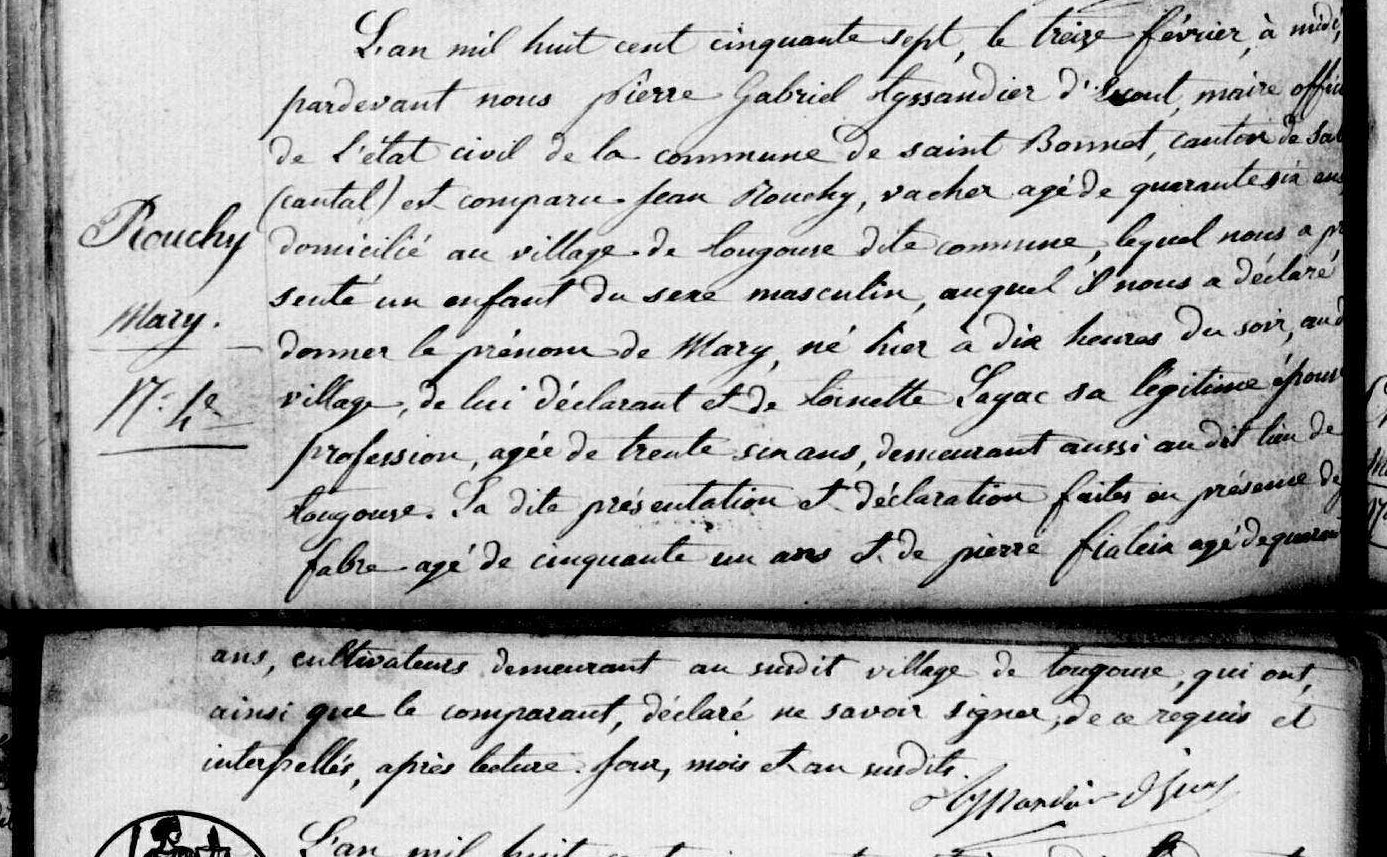 L'an mil huit cent cinquante sept, le treize février, à midi,
pardevant nous pierre Gabriel Ayssandier d'Escout, maire offici
de l'état civil de la commune de saint Bonnet, canton de Sal
(cantal) est comparu Jean Rouchy, vacher agé de quarante six ans
Rouchy
domicilié au village de tougouse dite commune, lequel nous a pr
senté un enfant du sexe masculin, auquel il nous a déclaré
Mary.
donner le prénom de Mary, né hier à dix heures du soir, aud
N.º 4e
village, de lui déclarant et de toinette Layac sa légitime épouse
profession, agée de trente six ans, demeurant aussi au dit lieu de
tougouse. La dite présentation et déclaration faites en présence de
fabre agé de cinquante un ans et de pierre fialeix agé de quarant
ans, cultivateurs demeurant au susdit village de tougouse, qui ont,
ainsi que le comparant, déclaré ne savoir signer, de ce requis et
interpellés, après lecture. Jour, mois et an susdits.
L'an mil huit